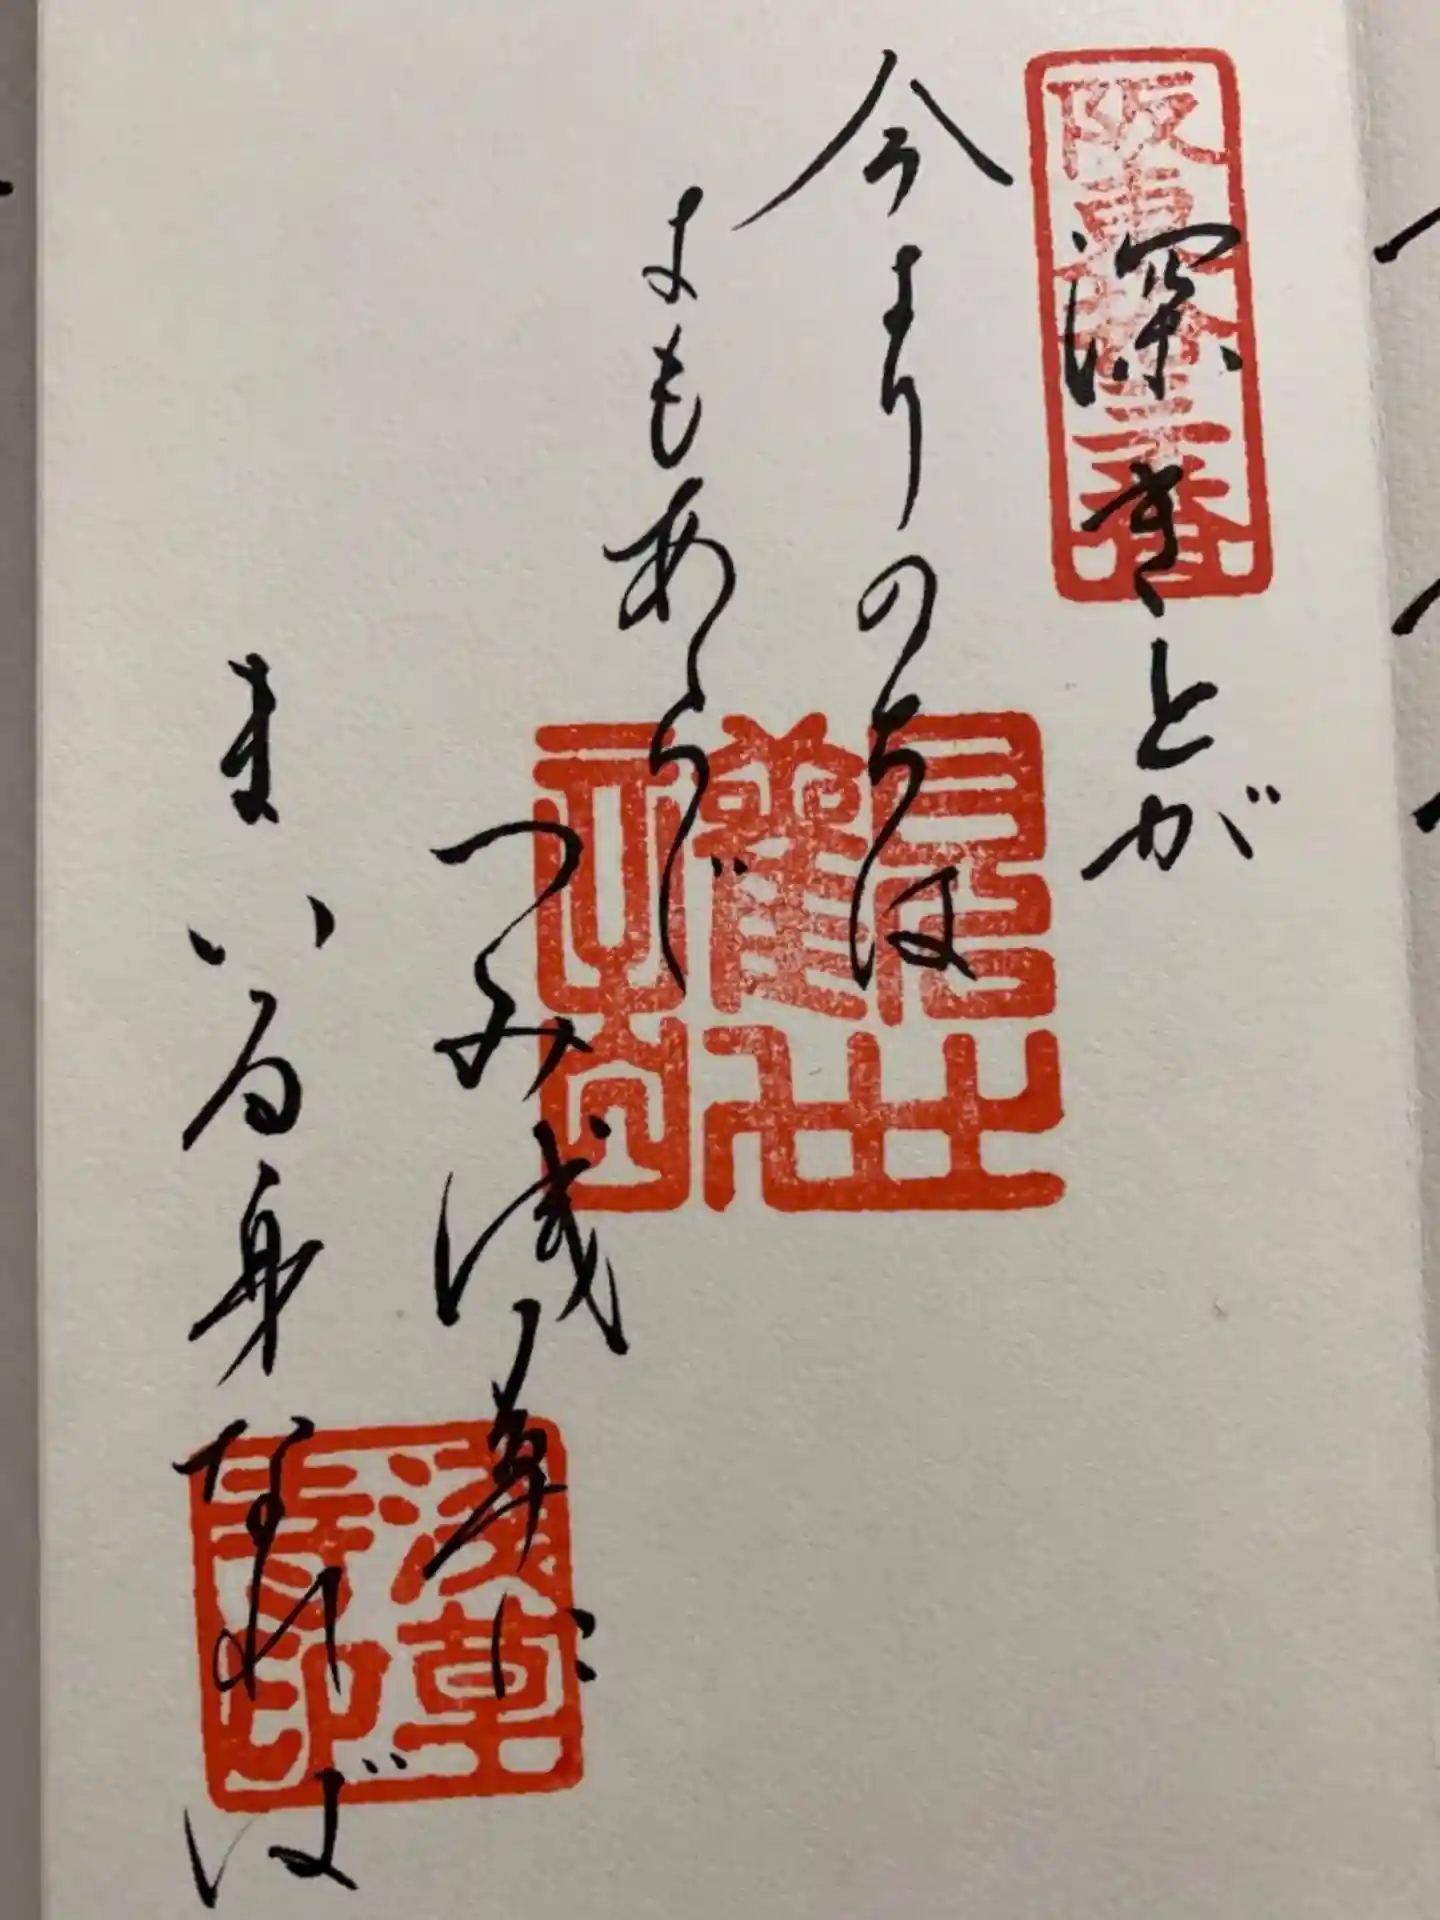 阪東拾三番
深きとが
今よりのちは
よもあらじ
つみ浅草に
まいる身なれば
浅草
寺印